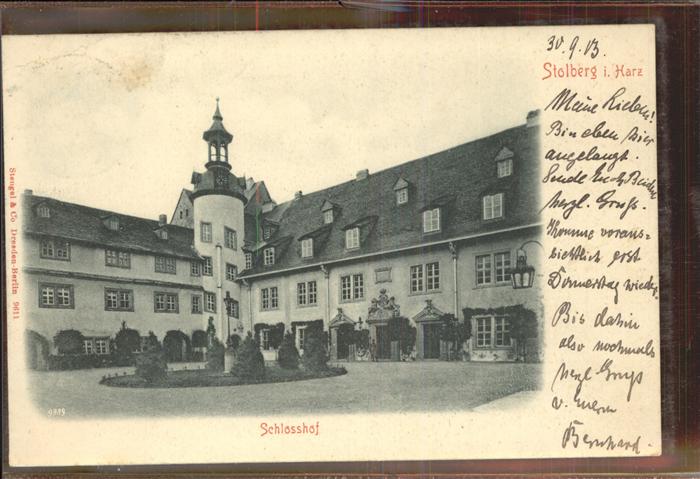 30.9.03.
Stolberg i. Harz
Meine Lieben!
Bin eben hier
angelangt.
Sende Euch
herzl. Gruß.
Komme voraus=
sichtlich erst
Donnerstag wieder.
Bis dahin
also nochmals
herzl Gruß
v. Euerm
Bernhard.
Stengel & Co Dresden-Berlin 9611
Schlosshof